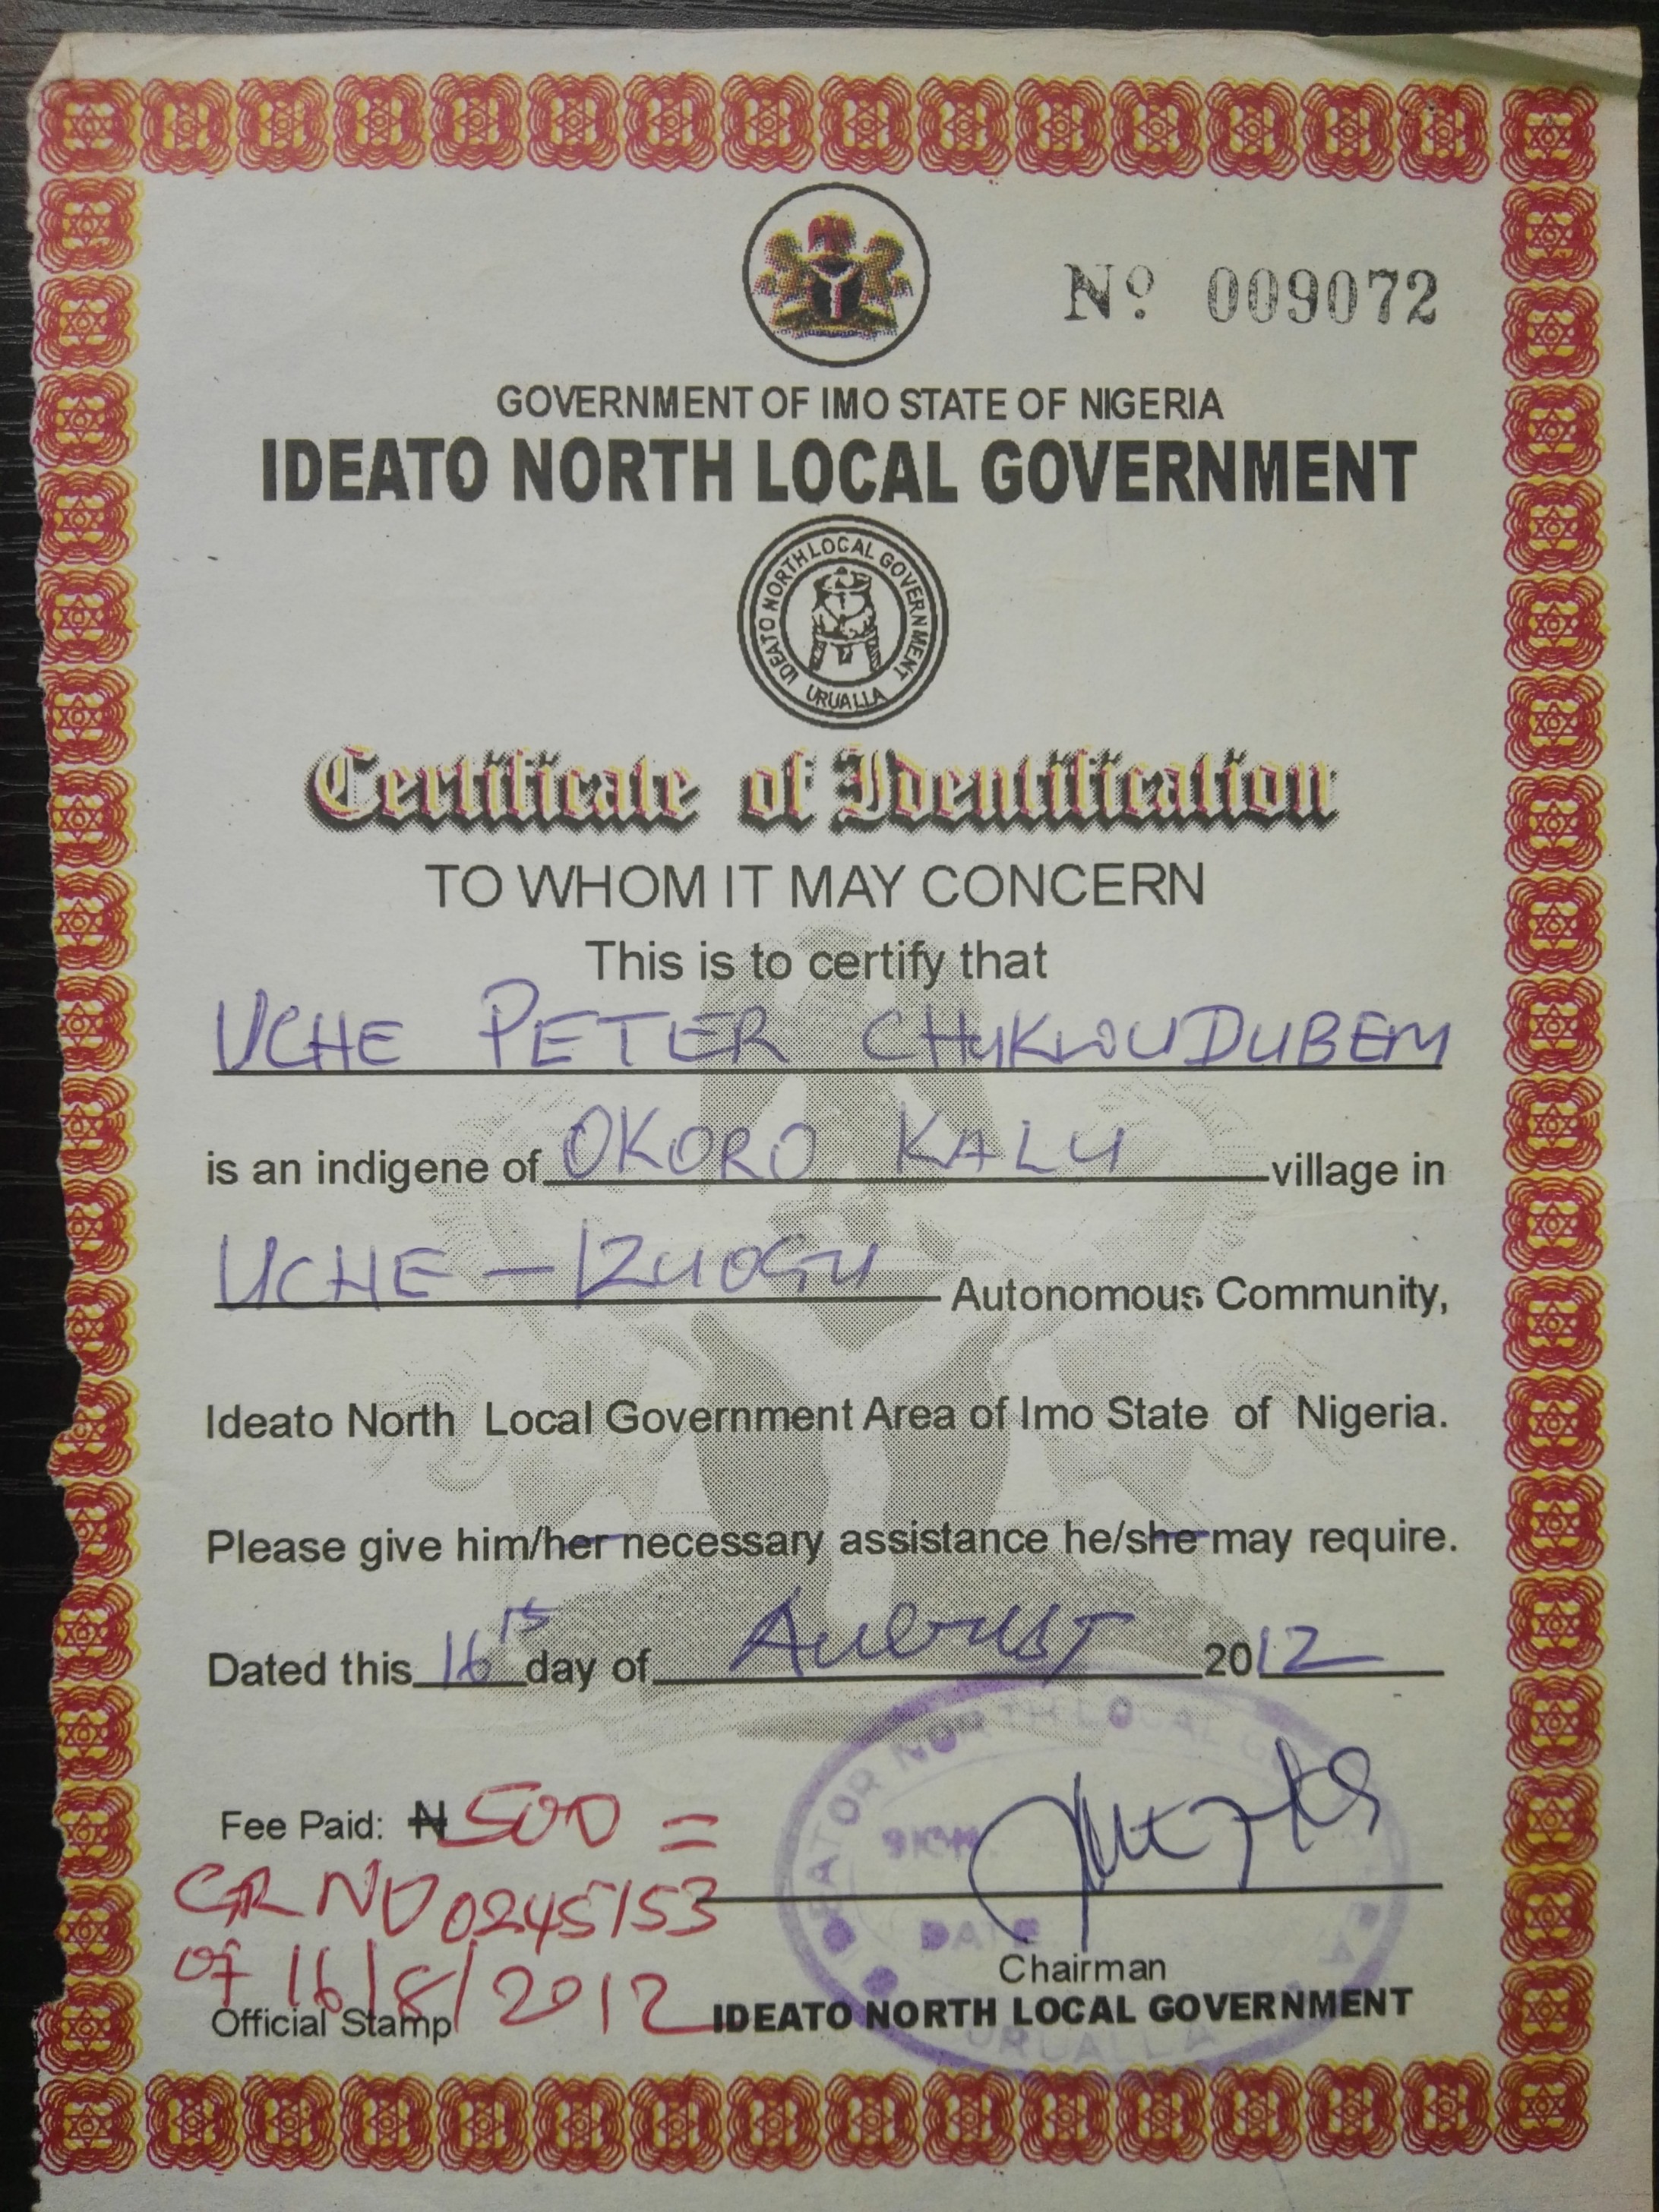 Nº 009072
GOVERNMENT OF IMO STATE OF NIGERIA
IDEATO NORTH LOCAL GOVERNMENT
IDEATO NORTH LOCAL GOVERNMENT
URUALLA
Certificate of Identification
TO WHOM IT MAY CONCERN
This is to certify that
UCHE PETER CHUKWUDUBEM
is an indigene of OKORO KALU village in
UCHE - IZUOGU Autonomous Community,
Ideato North Local Government Area of Imo State of Nigeria.
Please give him/her necessary assistance he/she may require.
Dated this 16th day of August 2012
Fee Paid: ₦500 =
CR NO 0245153
of 16/8/2012
Official Stamp
SIGN.
DATE
Chairman
IDEATO NORTH LOCAL GOVERNMENT
URUALLA